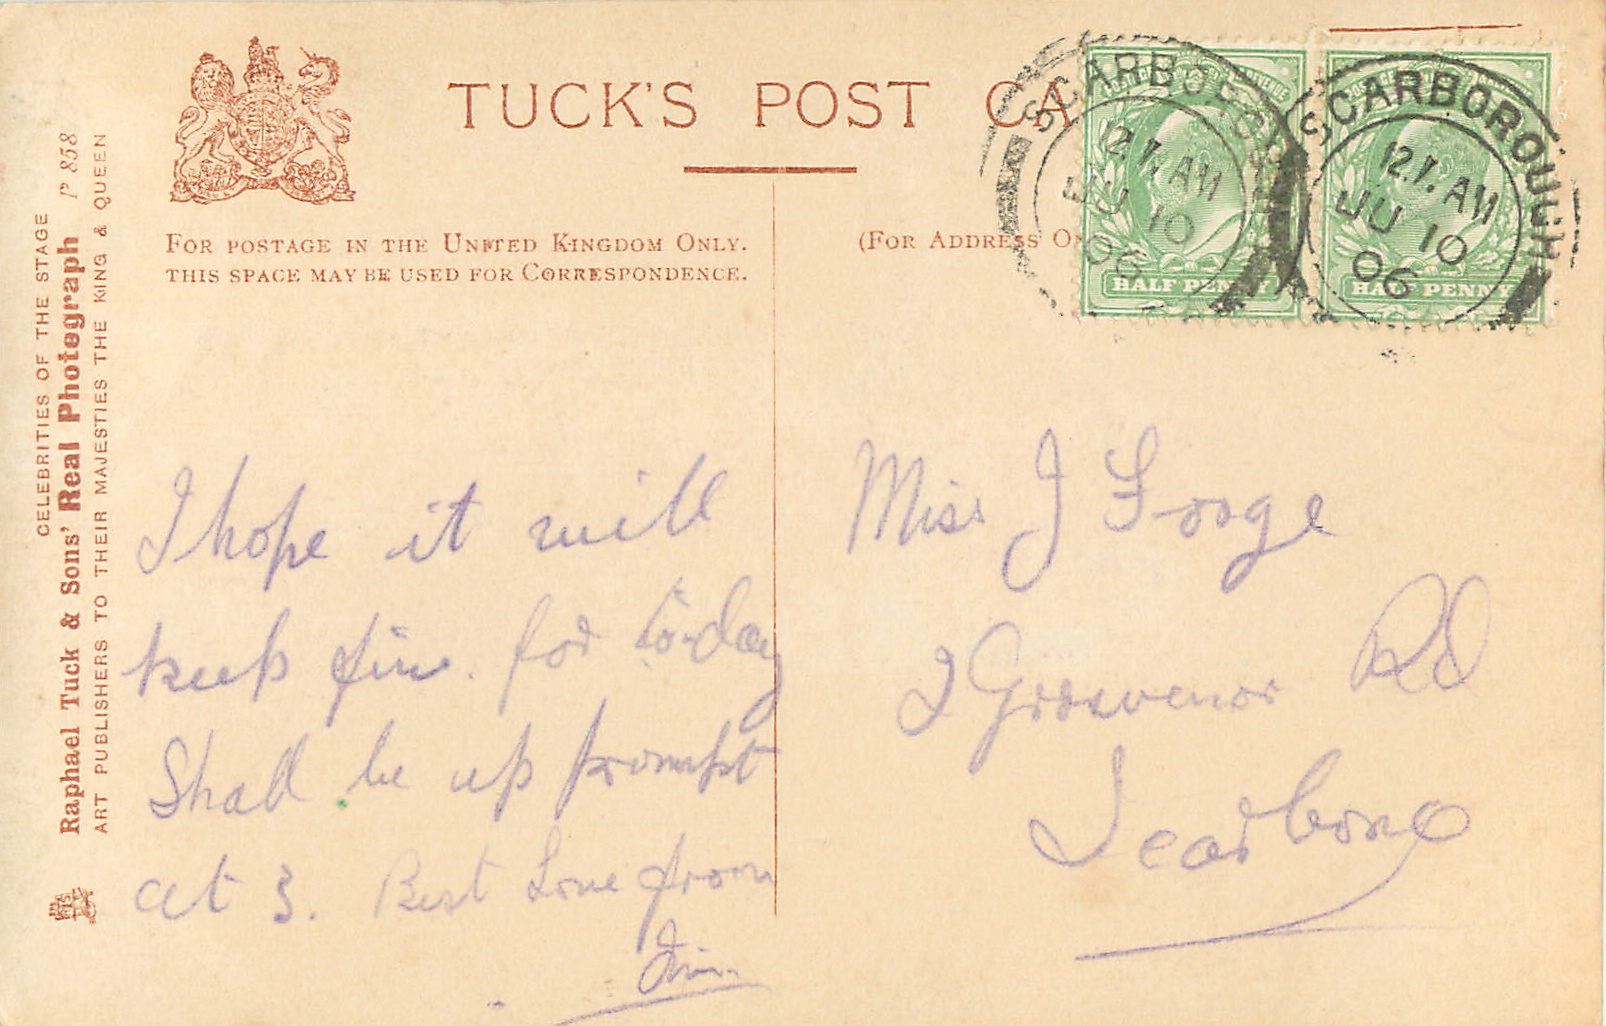 TUCK'S POST CA
FOR POSTAGE IN THE UNITED KINGDOM ONLY.
THIS SPACE MAY BE USED FOR CORRESPONDENCE.
(FOR ADDRESS ON
SCARBOROUGH
12.T. AM
JU 10
06
HALF PENNY
SCARBOROUGH
12.T. AM
JU 10
06
HALF PENNY
CELEBRITIES OF THE STAGE
Raphael Tuck & Sons' Real Photograph P 858
ART PUBLISHERS TO THEIR MAJESTIES THE KING & QUEEN
I hope it will
keep fine for to-day
Shall be up prompt
at 3. Best Love from
Jim.
Miss J Forge
2 Grosvenor Rd
Scarboro